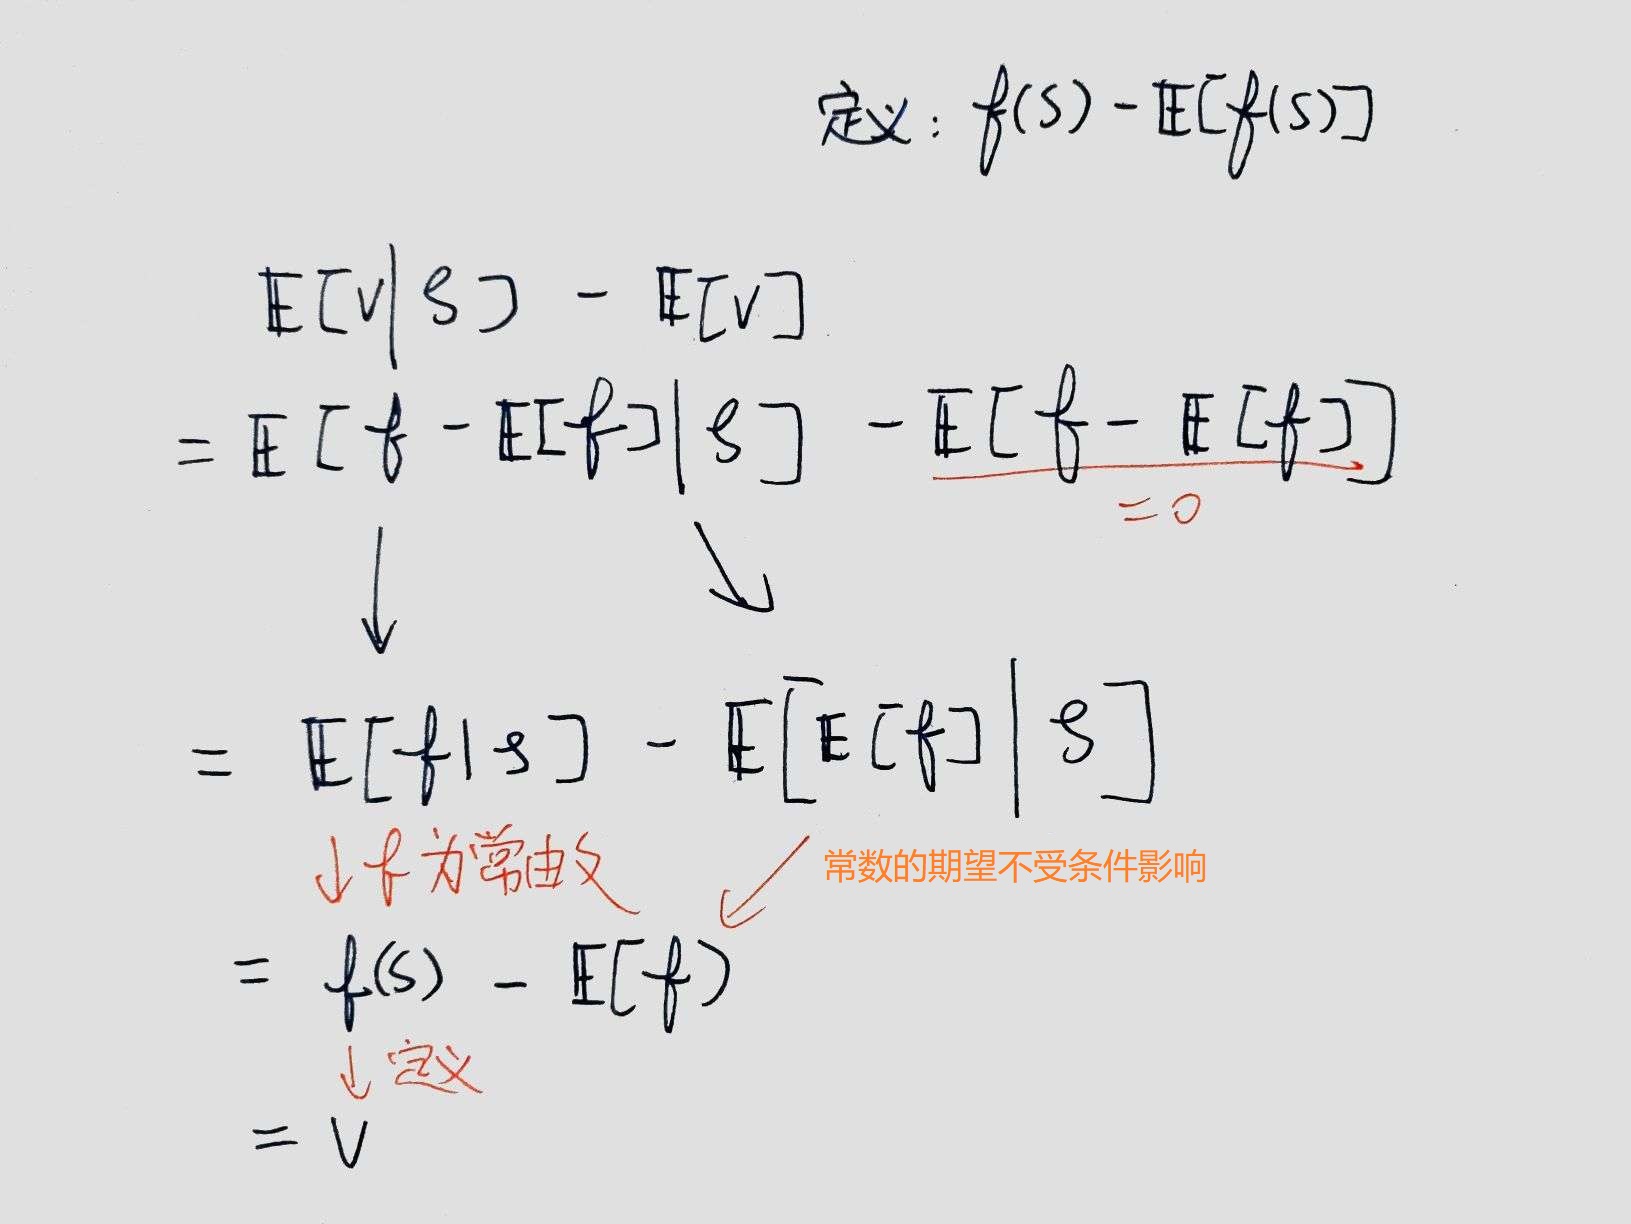 定义: f(S) - E[f(S)]
E[V|S] - E[V]
= E[f - E[f]|S] - E[f - E[f]]
= 0
= E[f|S] - E[E[f]|S]
↓ f 为常由义
常数的期望不受条件影响
= f(S) - E[f)
↓ 定义
= V